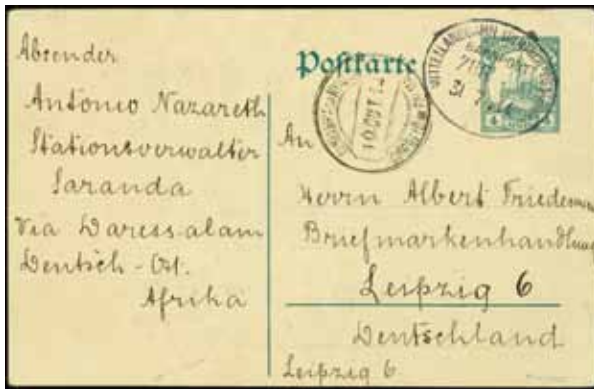 Absender
Antonio Nazareth
Stationsverwalter
Saranda
Via Daressalam
Deutsch-Ost.
Afrika
Postkarte
An
Herrn Albert
Briefmarkenhandlung
Leipzig 6
Deutschland
Leipzig 6